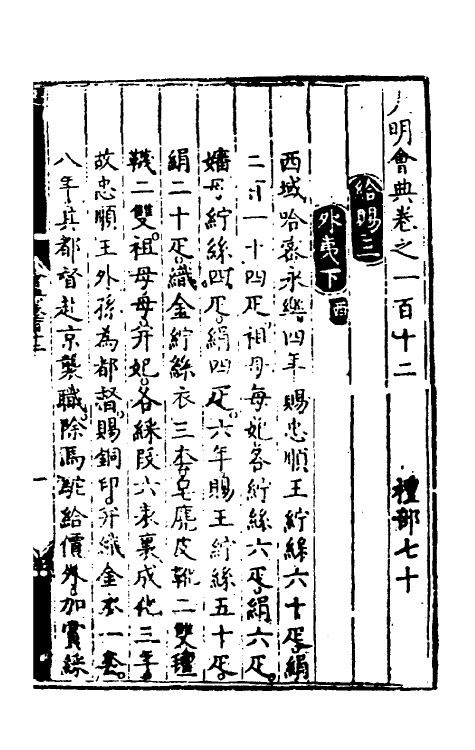 大明會典卷之一百十二 禮部七十
給賜三
外夷下
西域哈密永樂四年賜忠順王紵絲六十疋絹
二百一十四疋祖母每妃各紵絲六疋絹六疋
嬸母紵絲四疋絹四疋六年賜王紵絲五十疋
絹二十疋織金紵絲衣三套皂麂皮靴二雙氊
韈二雙祖母母并妃各綵段六表裏成化三年
故忠順王外孫為都督賜銅印并織金衣一套
八年其都督赴京襲職除馬駝給價外加賞綵